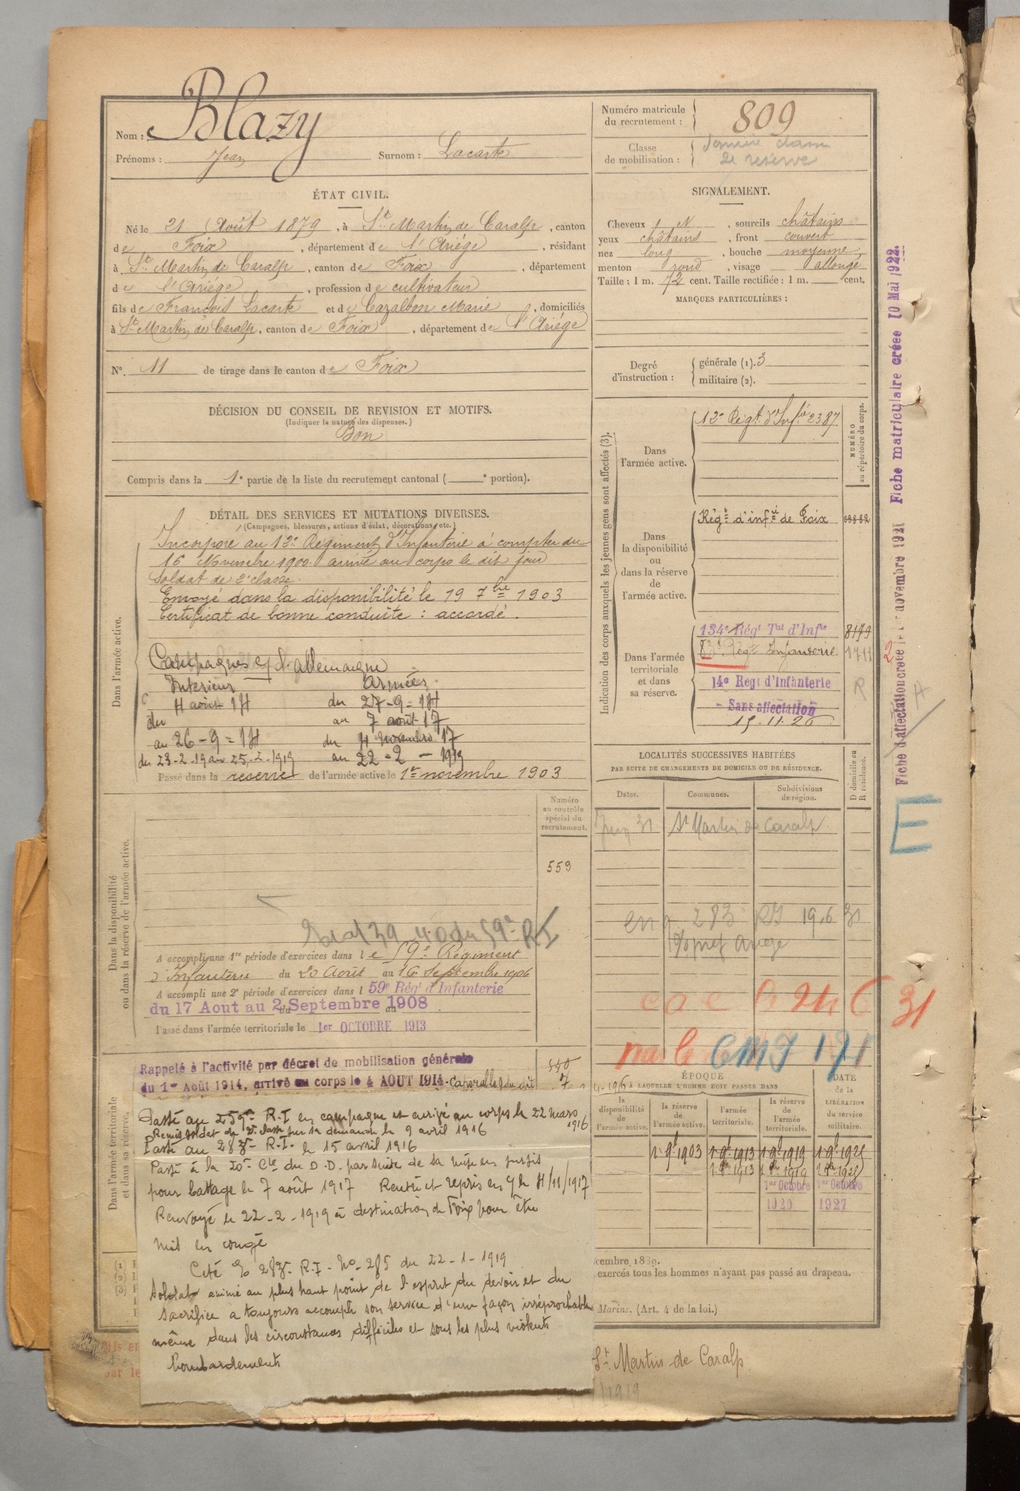 Nom : Blazy
Prénoms : Jean Surnom : Lacaste
Numéro matricule du recrutement : 809
Classe de mobilisation : de réserve
ÉTAT CIVIL.
Né le 21 Août 1879, à St Martin de Caralp, canton
de Foix, département de l'Ariège, résidant
à St Martin de Caralp, canton de Foix, département
de l'Ariège, profession de cultivateur
fils de François Lacaste et de Cazalbon Marie, domiciliés
à St Martin de Caralp, canton de Foix, département de l'Ariège
N° 11 de tirage dans le canton de Foix
SIGNALEMENT.
Cheveux N, sourcils châtains
yeux châtains, front couvert
nez long, bouche moyenne,
menton rond, visage allongé
Taille : 1 m. 72 cent. Taille rectifiée : 1 m. cent.
MARQUES PARTICULIÈRES :
Degré d'instruction : générale (1). 3
militaire (2).
DÉCISION DU CONSEIL DE REVISION ET MOTIFS.
(Indiquer la nature des dispenses.)
Bon
Compris dans la 1e partie de la liste du recrutement cantonal ( e portion).
DÉTAIL DES SERVICES ET MUTATIONS DIVERSES.
(Campagnes, blessures, actions d'éclat, décorations, etc.)
Dans l'armée active.
Incorporé au 12e Régiment d'Infanterie à compter du
16 Novembre 1900 arrivé au corps le dit jour
Soldat de 2e classe.
Envoyé dans la disponibilité le 19 7bre 1903
Certificat de bonne conduite : accordé.
Campagnes c/ l'allemagne
Intérieur Armées
du 4 août 14 du 27-9-14
au 7 août 17
au 26-9-14 du 4 novembre 17
du 23-2-19 au 25-2-1919 au 22-2-1919
Passé dans la réserve de l'armée active le 1er novembre 1903
Indication des corps auxquels les jeunes gens sont affectés (3).
NUMÉRO au répertoire du corps.
Dans l'armée active.
12e Régt d'Infie 2387
Dans la disponibilité ou dans la réserve de l'armée active.
Régt d'infie de Foix
Dans l'armée territoriale et dans sa réserve.
134e Régt Tal d'Infie 8179
Régt Infanterie 1711
14e Regt d'Infanterie
- Sans affectation
15.11.26
Fiche d'affectation créée le 1er novembre 1921
Fiche matriculaire créée 10 Mai 1922.
E
Dans la disponibilité ou dans la réserve de l'armée active.
Numéro au contrôle spécial du recrutement.
559
59e RI
A accompli une 1re période d'exercices dans le 59e Régiment
d'Infanterie du 20 Août au 16 Septembre 1906
A accompli une 2e période d'exercices dans l 59e Rég' d'Infanterie
du 17 Aout au 2 Septembre 1908
Passé dans l'armée territoriale le 1er OCTOBRE 1913
LOCALITÉS SUCCESSIVES HABITÉES
PAR SUITE DE CHANGEMENTS DE DOMICILE OU DE RÉSIDENCE.
Dates. Communes. Subdivisions de région. D domicile ou R résidence.
31 St Martin de Caralp
283 RI 19.6 31
31
Dans l'armée territoriale et dans sa réserve.
Rappelé à l'activité par décret de mobilisation générale
du 1er Août 1914, arrivé au corps le 4 AOUT 1914.
Passé au 259e R.I en campagne et arrivé au corps le 22 mars 1916
Remis soldat de 2e classe sur sa demande le 9 avril 1916
Passé au 283e R.I. le 15 avril 1916
Passé à la 20e Cie du D.D. par suite de sa mise en sursis
pour battage le 7 août 1917 Rentré et repris en 4/11/1917
Renvoyé le 22-2-1919 à destination de Foix pour être
mis en congé
Cité 283e R.I. No 285 du 22-1-1919
Soldat animé au plus haut point de l'esprit du devoir et du
sacrifice a toujours accompli son service d'une façon irréprochable
même dans les circonstances difficiles et sous les plus violents
bombardements
ÉPOQUE
À LAQUELLE L'HOMME DOIT PASSER DANS
DATE de la LIBÉRATION du service militaire.
la disponibilité de l'armée active. la réserve de l'armée active. l'armée territoriale. la réserve de l'armée territoriale.
1 9e 1903 1 9e 1913 1 9e 1919
1er Octobre 1er Octobre
1920 1927
exercés tous les hommes n'ayant pas passé au drapeau.
Marine. (Art. 4 de la loi.)
St Martin de Caralp
1919